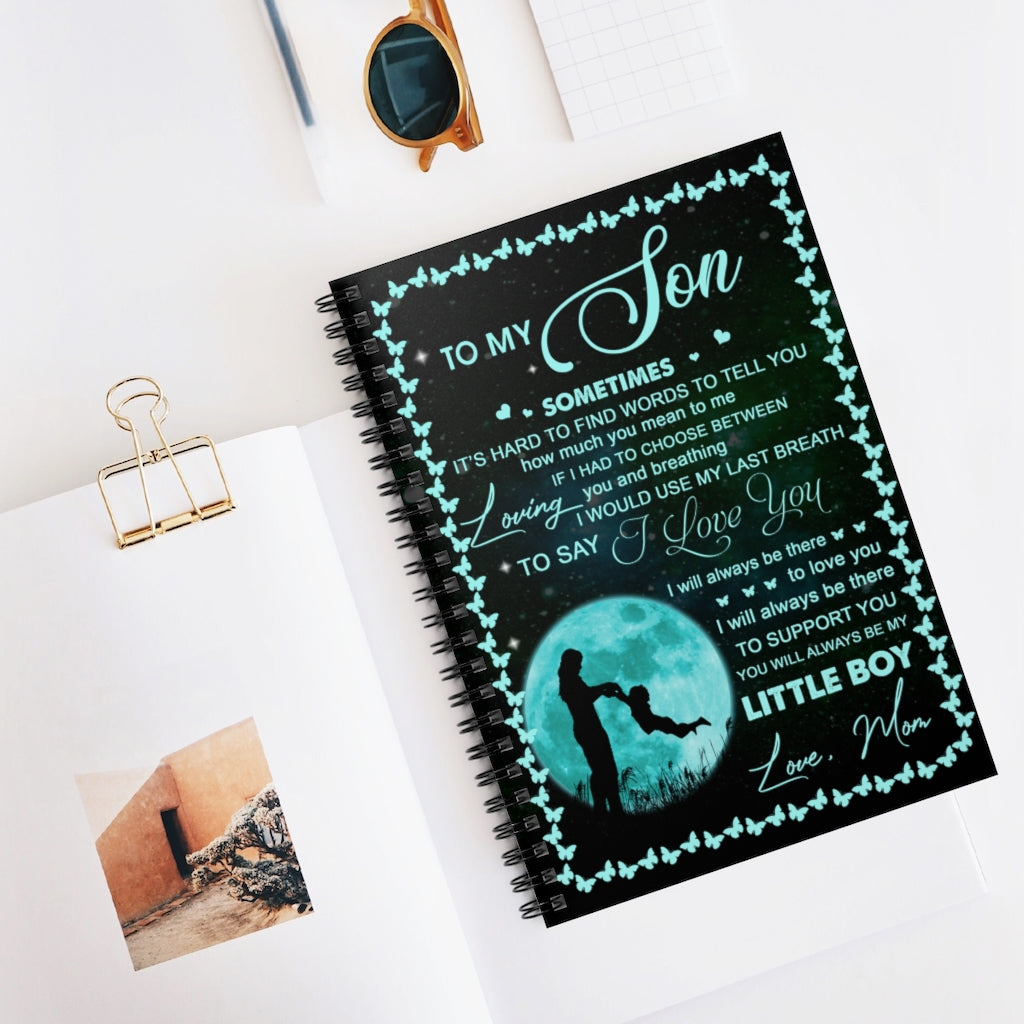 TO MY Son
SOMETIMES
IT'S HARD TO FIND WORDS TO TELL YOU
how much you mean to me
IF I HAD TO CHOOSE BETWEEN
Loving you and breathing
I WOULD USE MY LAST BREATH
TO SAY I Love You
I will always be there
to love you
I will always be there
TO SUPPORT YOU
YOU WILL ALWAYS BE MY
LITTLE BOY
Love, Mom